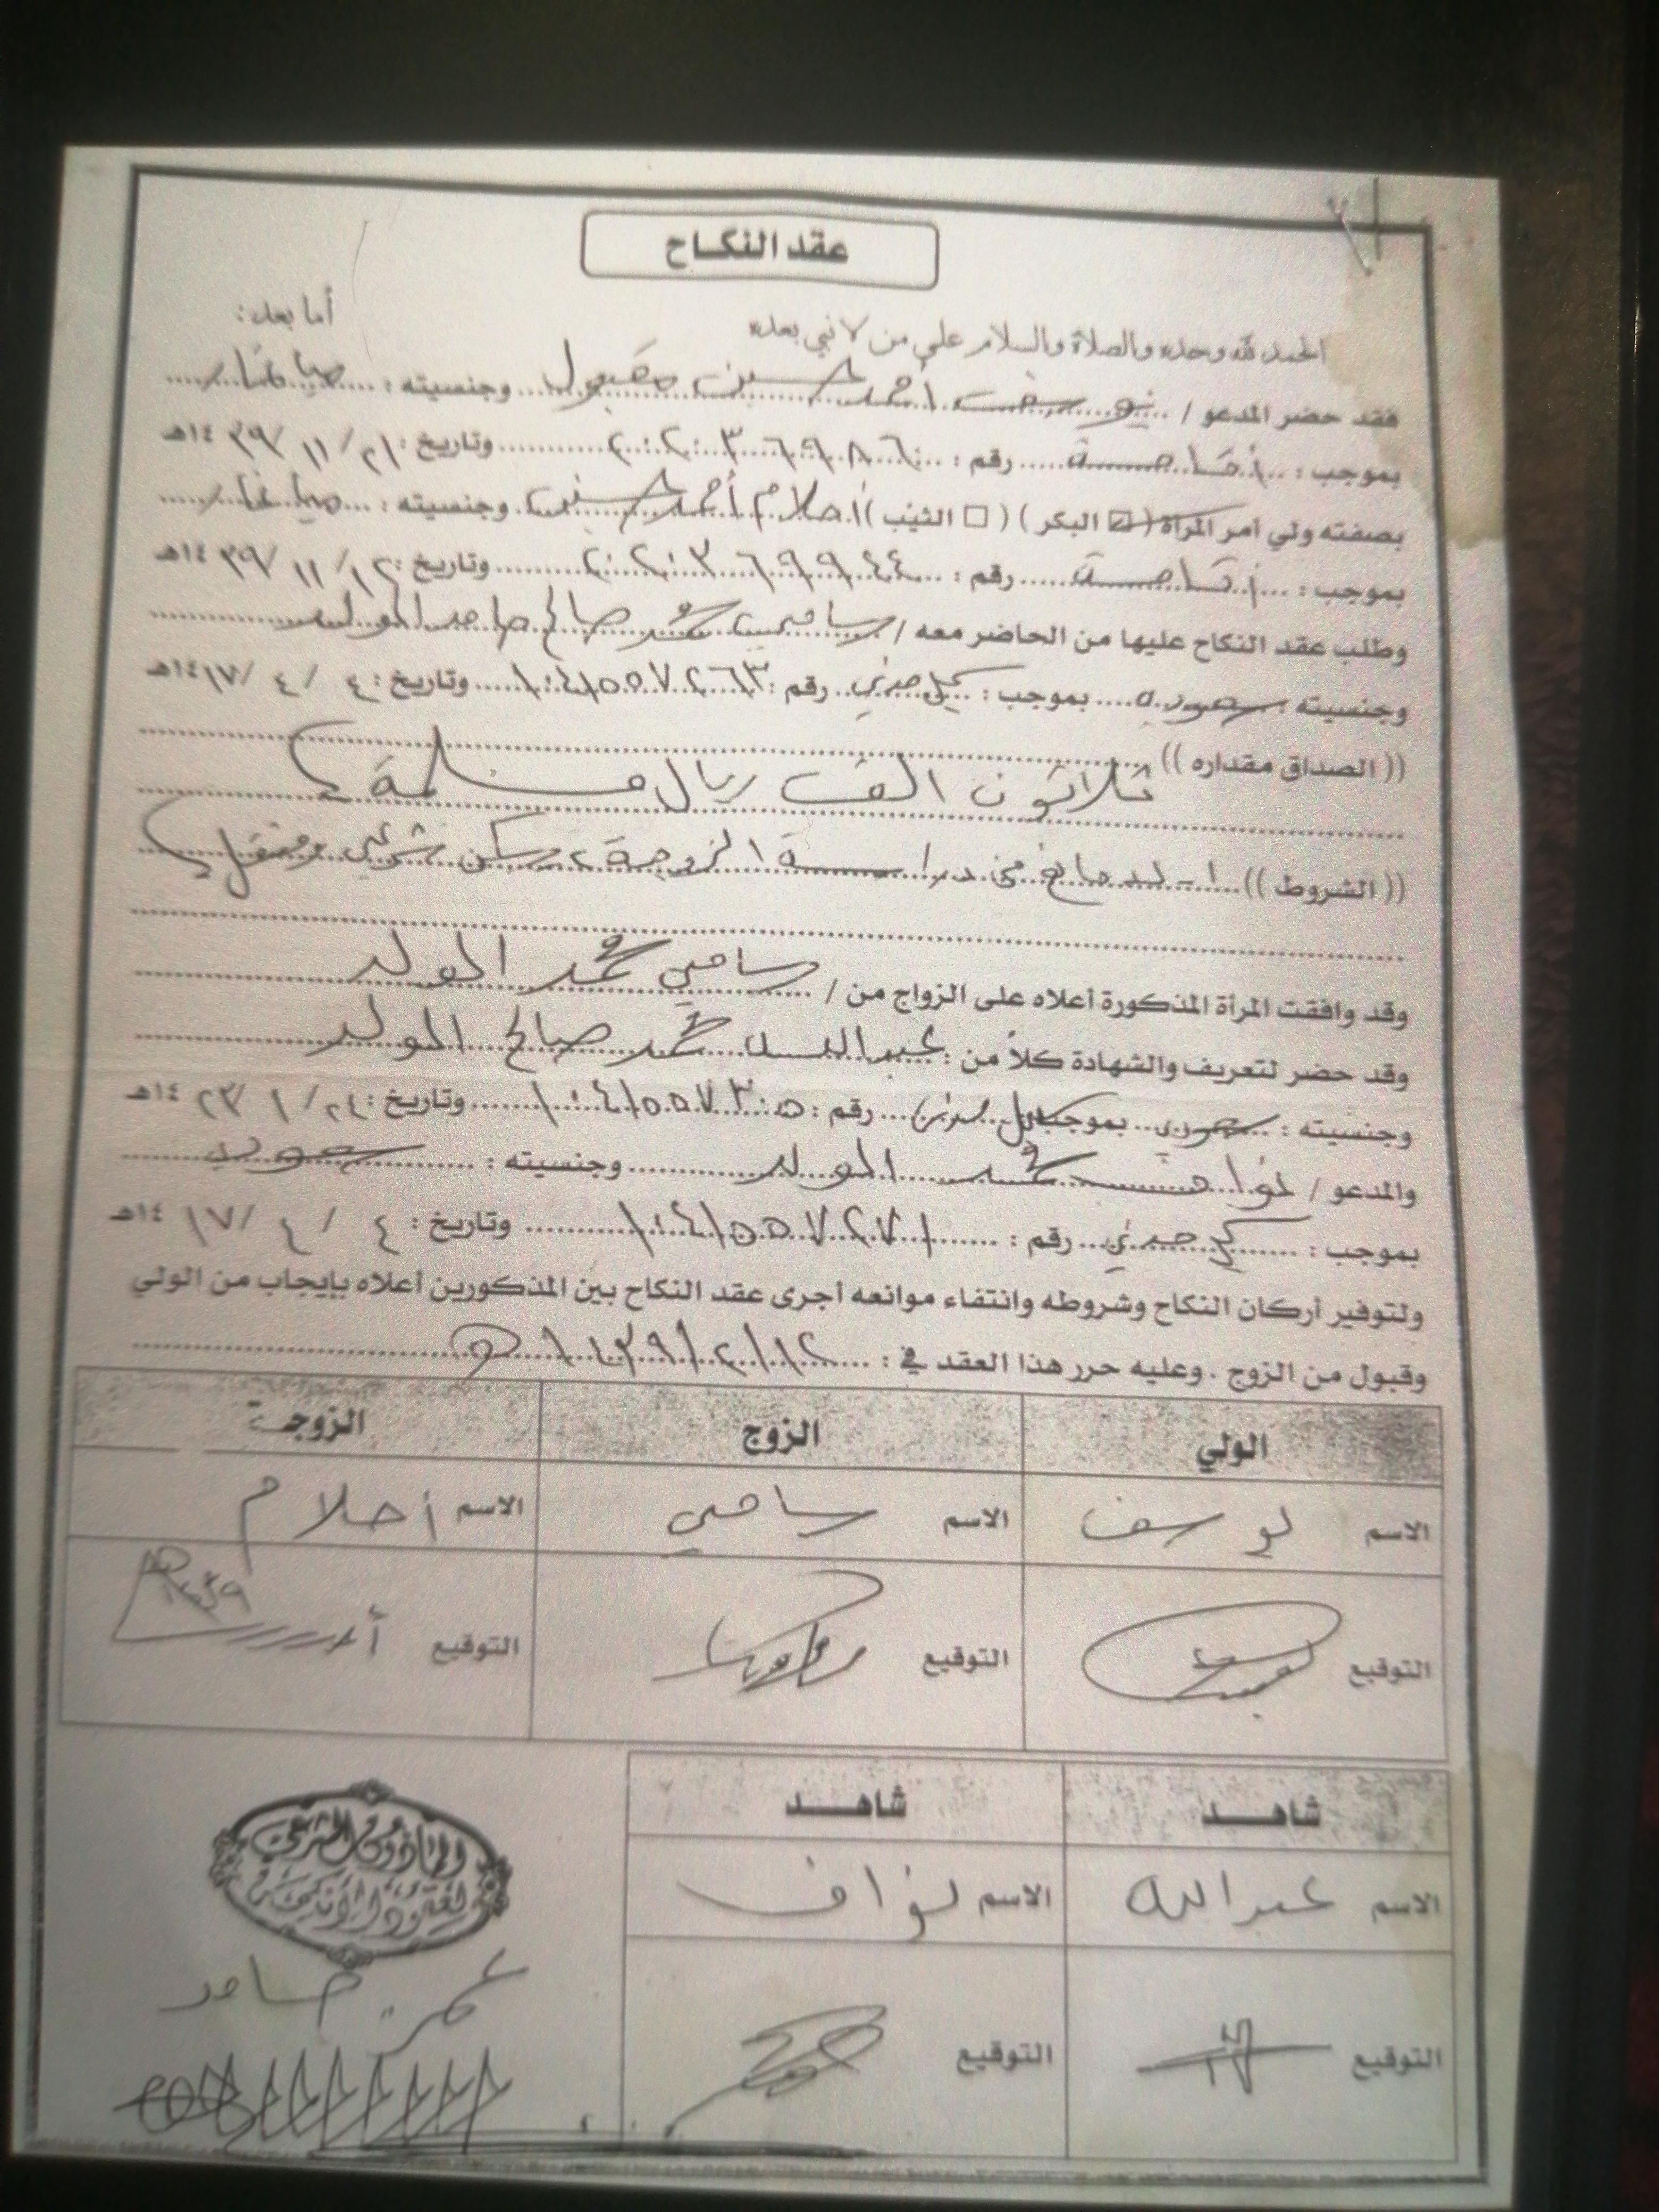 عقد النكاح
الحمد لله وحده والصلاة والسلام على من لا نبي بعده أما بعد :
فقد حضر المدعو / يوسف احمد حسين مقبول وجنسيته :
بموجب : اقامة رقم : ٢٠٢٠٣٦٩٨٦ وتاريخ : ٢١ / ١١ / ١٤٣٩هـ
بصفته ولي أمر المرأة ( ☑ البكر ) ( □ الثيب ) أحلام أحمد حسين وجنسيته :
بموجب : اقامة رقم : ٢٠٢٠٣٦٩٩٤٤ وتاريخ : / ١١ / ١٤٣٩هـ
وطلب عقد النكاح عليها من الحاضر معه / سامي محمد صالح حامد المولد
وجنسيته : سعودي بموجب : سجل مدني رقم : ١٠٤١٥٥٧٢٦٣ وتاريخ : ٤ / ٤ / ١٤١٧هـ
(( الصداق مقداره ))
ثلاثون الف ريال مسلمة
(( الشروط )) ١- لا مانع من دراسة الزوجة ٢ سكن شرعي مستقل
وقد وافقت المرأة المذكورة أعلاه على الزواج من / سامي محمد المولد
وقد حضر لتعريف والشهادة كلاً من : عبدالله محمد صالح المولد
وجنسيته : سعودي بموجب سجل مدني رقم : ١٠٤١٥٥٧٣٠٥ وتاريخ : ٢٤ / ١ / ١٤٢٣هـ
والمدعو / نواف محمد المولد وجنسيته : سعودي
بموجب : سجل مدني رقم : ١٠٤١٥٥٧٢٧١ وتاريخ : ٤ / ٤ / ١٤١٧هـ
ولتوفير أركان النكاح وشروطه وانتفاء موانعه أجرى عقد النكاح بين المذكورين أعلاه بإيجاب من الولي
وقبول من الزوج . وعليه حرر هذا العقد في :
الولي الزوج الزوجة
الاسم يوسف الاسم سامي الاسم أحلام
التوقيع التوقيع التوقيع
شاهد شاهد
الاسم عبدالله الاسم نواف
المأذون الشرعي
لعقود الأنكحة
التوقيع التوقيع